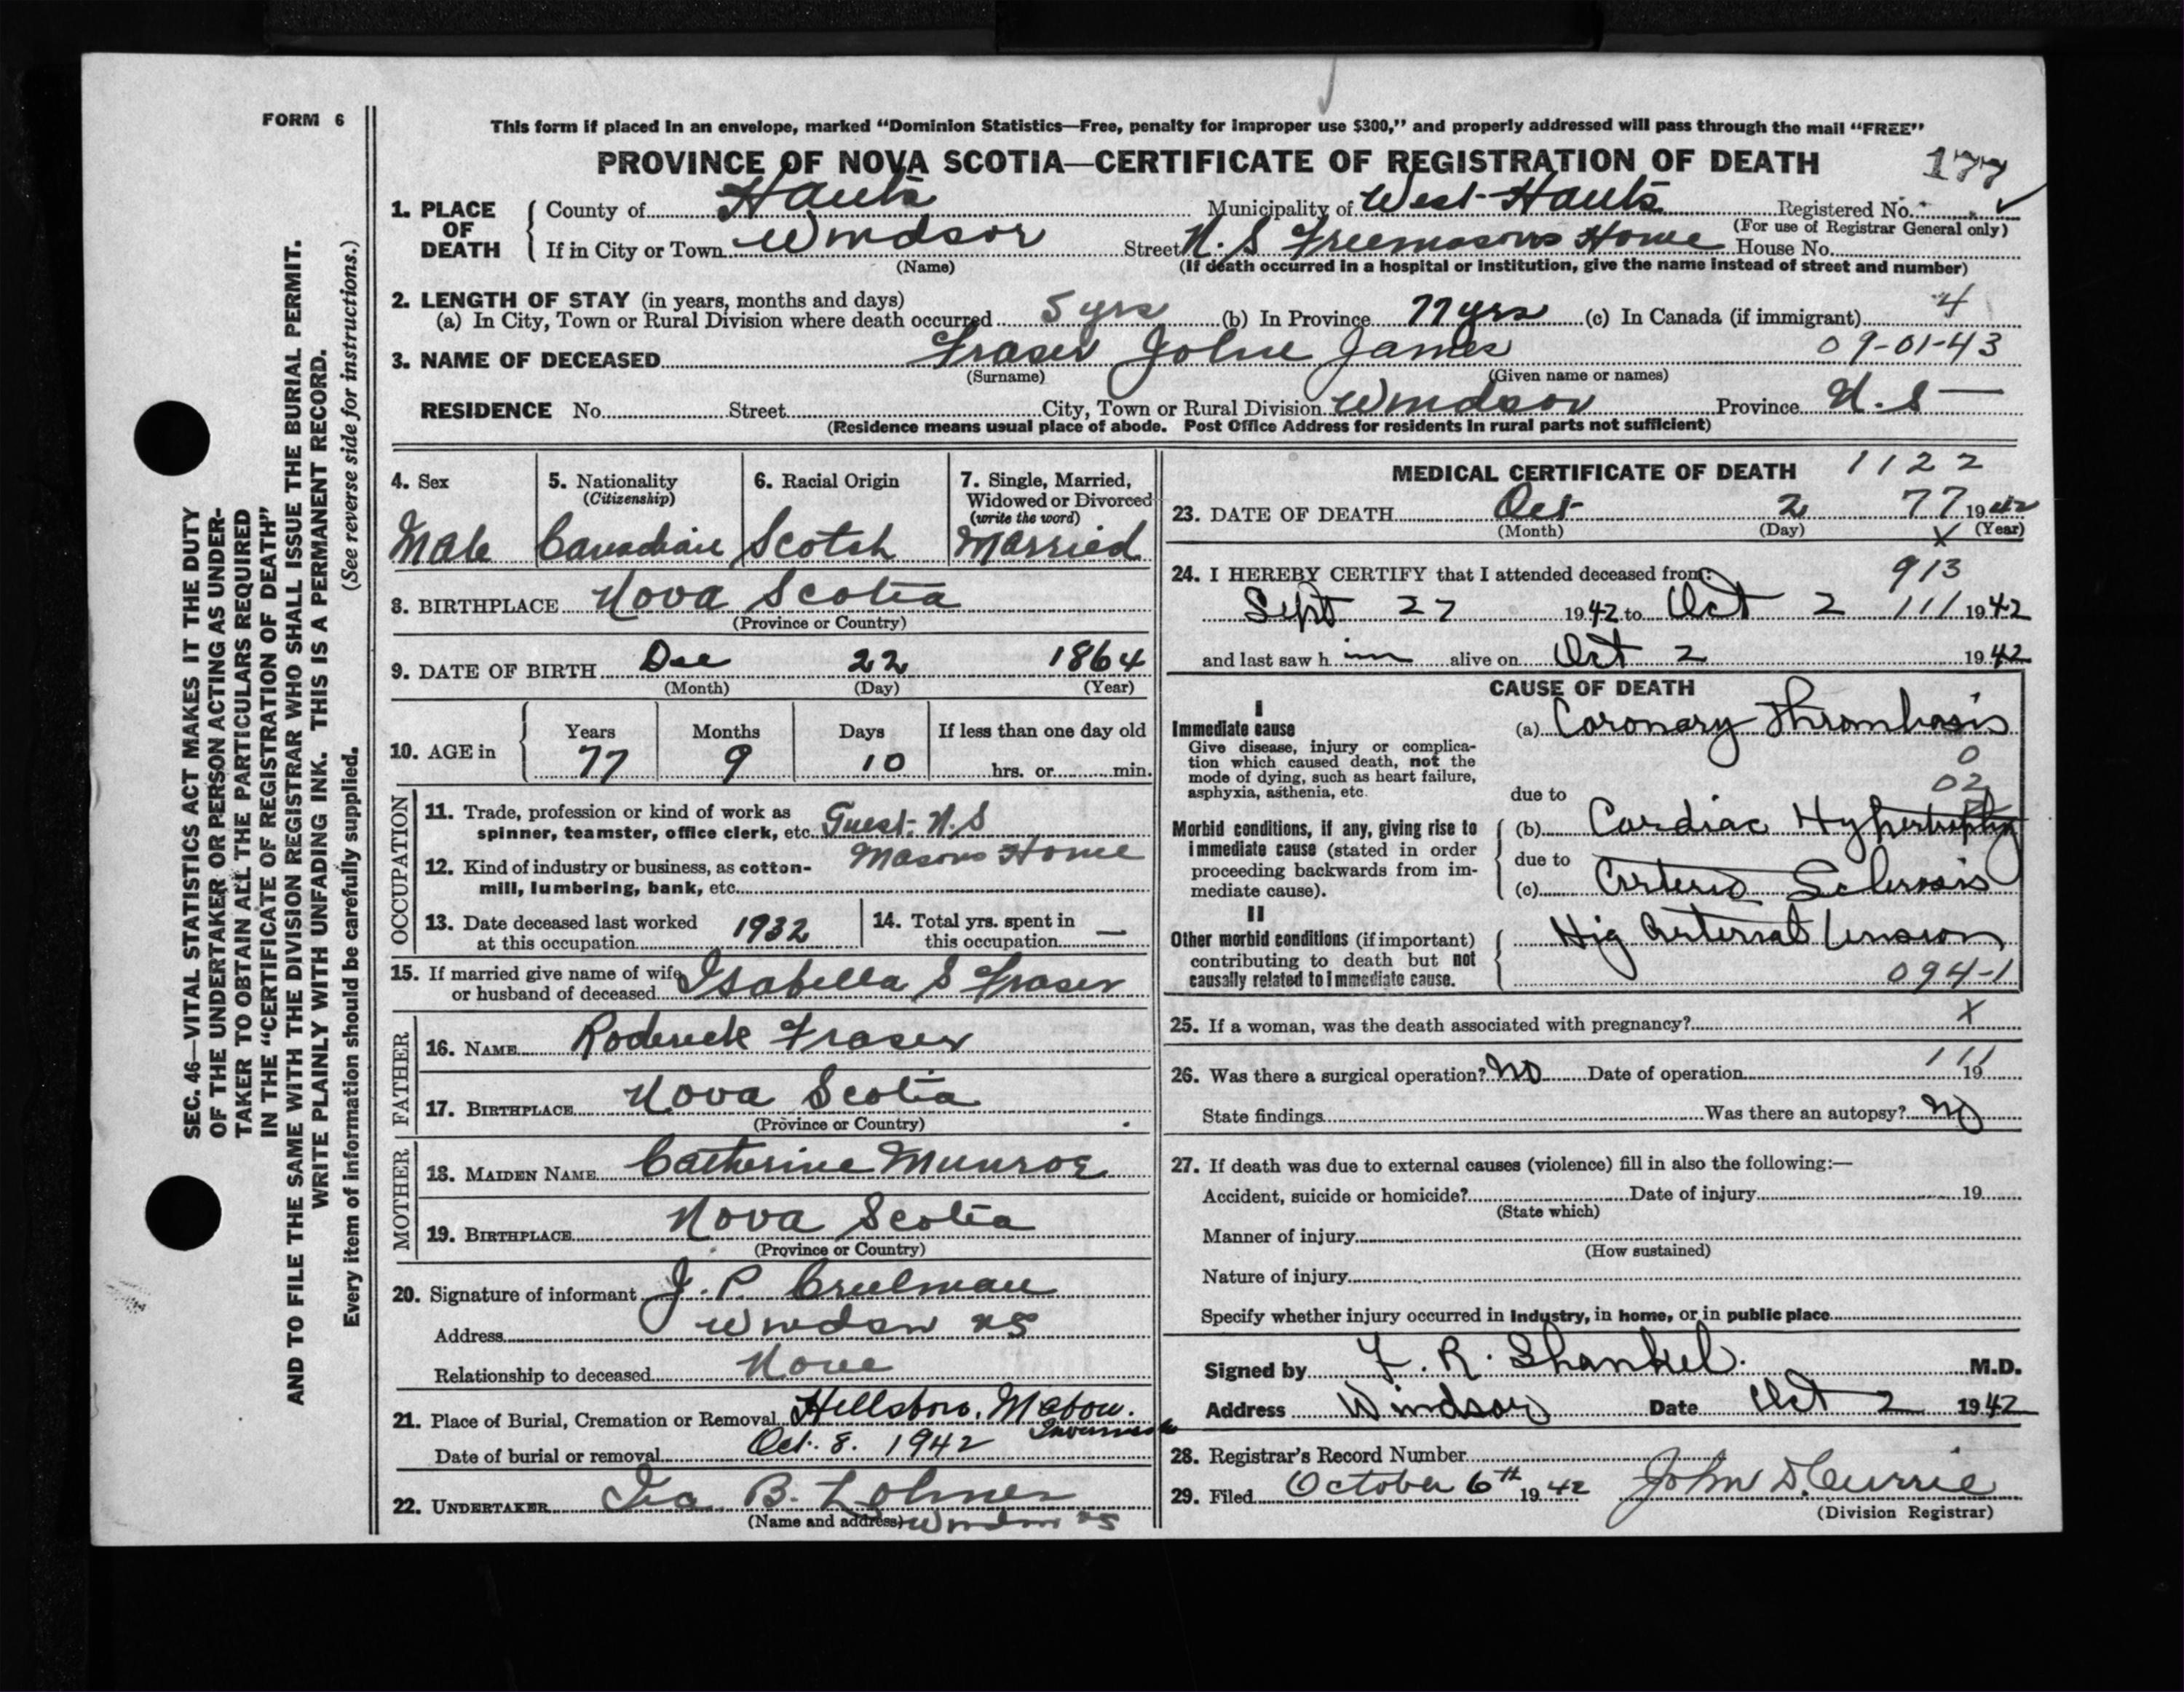 FORM 6
This form if placed in an envelope, marked “Dominion Statistics—Free, penalty for improper use $300,” and properly addressed will pass through the mail “FREE”
PROVINCE OF NOVA SCOTIA—CERTIFICATE OF REGISTRATION OF DEATH
177
1. PLACE OF DEATH
County of Hants Municipality of West Hants Registered No.
(For use of Registrar General only)
If in City or Town Windsor Street N. S Freemasons Home House No.
(Name) (If death occurred in a hospital or institution, give the name instead of street and number)
2. LENGTH OF STAY (in years, months and days)
(a) In City, Town or Rural Division where death occurred 5 yrs (b) In Province 77 yrs (c) In Canada (if immigrant) 4
3. NAME OF DECEASED Fraser John James 09-01-43
(Surname) (Given name or names)
RESIDENCE No. Street City, Town or Rural Division Windsor Province N. S
(Residence means usual place of abode. Post Office Address for residents in rural parts not sufficient)
4. Sex Male
5. Nationality (Citizenship) Canadian
6. Racial Origin Scotch
7. Single, Married, Widowed or Divorced (write the word) Married
8. BIRTHPLACE Nova Scotia
(Province or Country)
9. DATE OF BIRTH Dec 22 1864
(Month) (Day) (Year)
10. AGE in Years 77 Months 9 Days 10 If less than one day old hrs. or min.
OCCUPATION
11. Trade, profession or kind of work as
spinner, teamster, office clerk, etc. Guest. N. S
Masons Home
12. Kind of industry or business, as cotton-
mill, lumbering, bank, etc.
13. Date deceased last worked
at this occupation 1932
14. Total yrs. spent in
this occupation —
15. If married give name of wife
or husband of deceased Isabella S Fraser
FATHER
16. NAME Roderick Fraser
17. BIRTHPLACE Nova Scotia
(Province or Country)
MOTHER
18. MAIDEN NAME Catherine Munroe
19. BIRTHPLACE Nova Scotia
(Province or Country)
20. Signature of informant J. P. Creelman
Address Windsor NS
Relationship to deceased None
21. Place of Burial, Cremation or Removal Hillsboro, Mabou.
Inverness
Date of burial or removal Oct. 8. 1942
22. UNDERTAKER Ira B. Lohnes
(Name and address) Windsor NS
MEDICAL CERTIFICATE OF DEATH 1122
23. DATE OF DEATH Oct 2 77 1942
(Month) (Day) X (Year)
24. I HEREBY CERTIFY that I attended deceased from: 913
Sept 27 1942 to Oct 2 111 1942
and last saw h im alive on Oct 2 1942
CAUSE OF DEATH
I
Immediate cause
Give disease, injury or complica-
tion which caused death, not the
mode of dying, such as heart failure,
asphyxia, asthenia, etc.
(a) Coronary Thrombosis
0
02
due to
Morbid conditions, if any, giving rise to
immediate cause (stated in order
proceeding backwards from im-
mediate cause).
(b) Cardiac Hypertrophy
due to
(c) Arterio Sclerosis
II
Other morbid conditions (if important)
contributing to death but not
causally related to immediate cause.
Hig Arterial tension
094-1
25. If a woman, was the death associated with pregnancy? X
111
26. Was there a surgical operation? No Date of operation 19
State findings Was there an autopsy? No
27. If death was due to external causes (violence) fill in also the following:—
Accident, suicide or homicide? Date of injury 19
(State which)
Manner of injury
(How sustained)
Nature of injury
Specify whether injury occurred in industry, in home, or in public place
Signed by F. R. Shankel. M.D.
Address Windsor Date Oct 2 1942
28. Registrar's Record Number
29. Filed October 6th 1942 John D. Currie
(Division Registrar)
SEC. 46—VITAL STATISTICS ACT MAKES IT THE DUTY
OF THE UNDERTAKER OR PERSON ACTING AS UNDER-
TAKER TO OBTAIN ALL THE PARTICULARS REQUIRED
IN THE “CERTIFICATE OF REGISTRATION OF DEATH”
AND TO FILE THE SAME WITH THE DIVISION REGISTRAR WHO SHALL ISSUE THE BURIAL PERMIT.
WRITE PLAINLY WITH UNFADING INK. THIS IS A PERMANENT RECORD.
Every item of information should be carefully supplied. (See reverse side for instructions.)